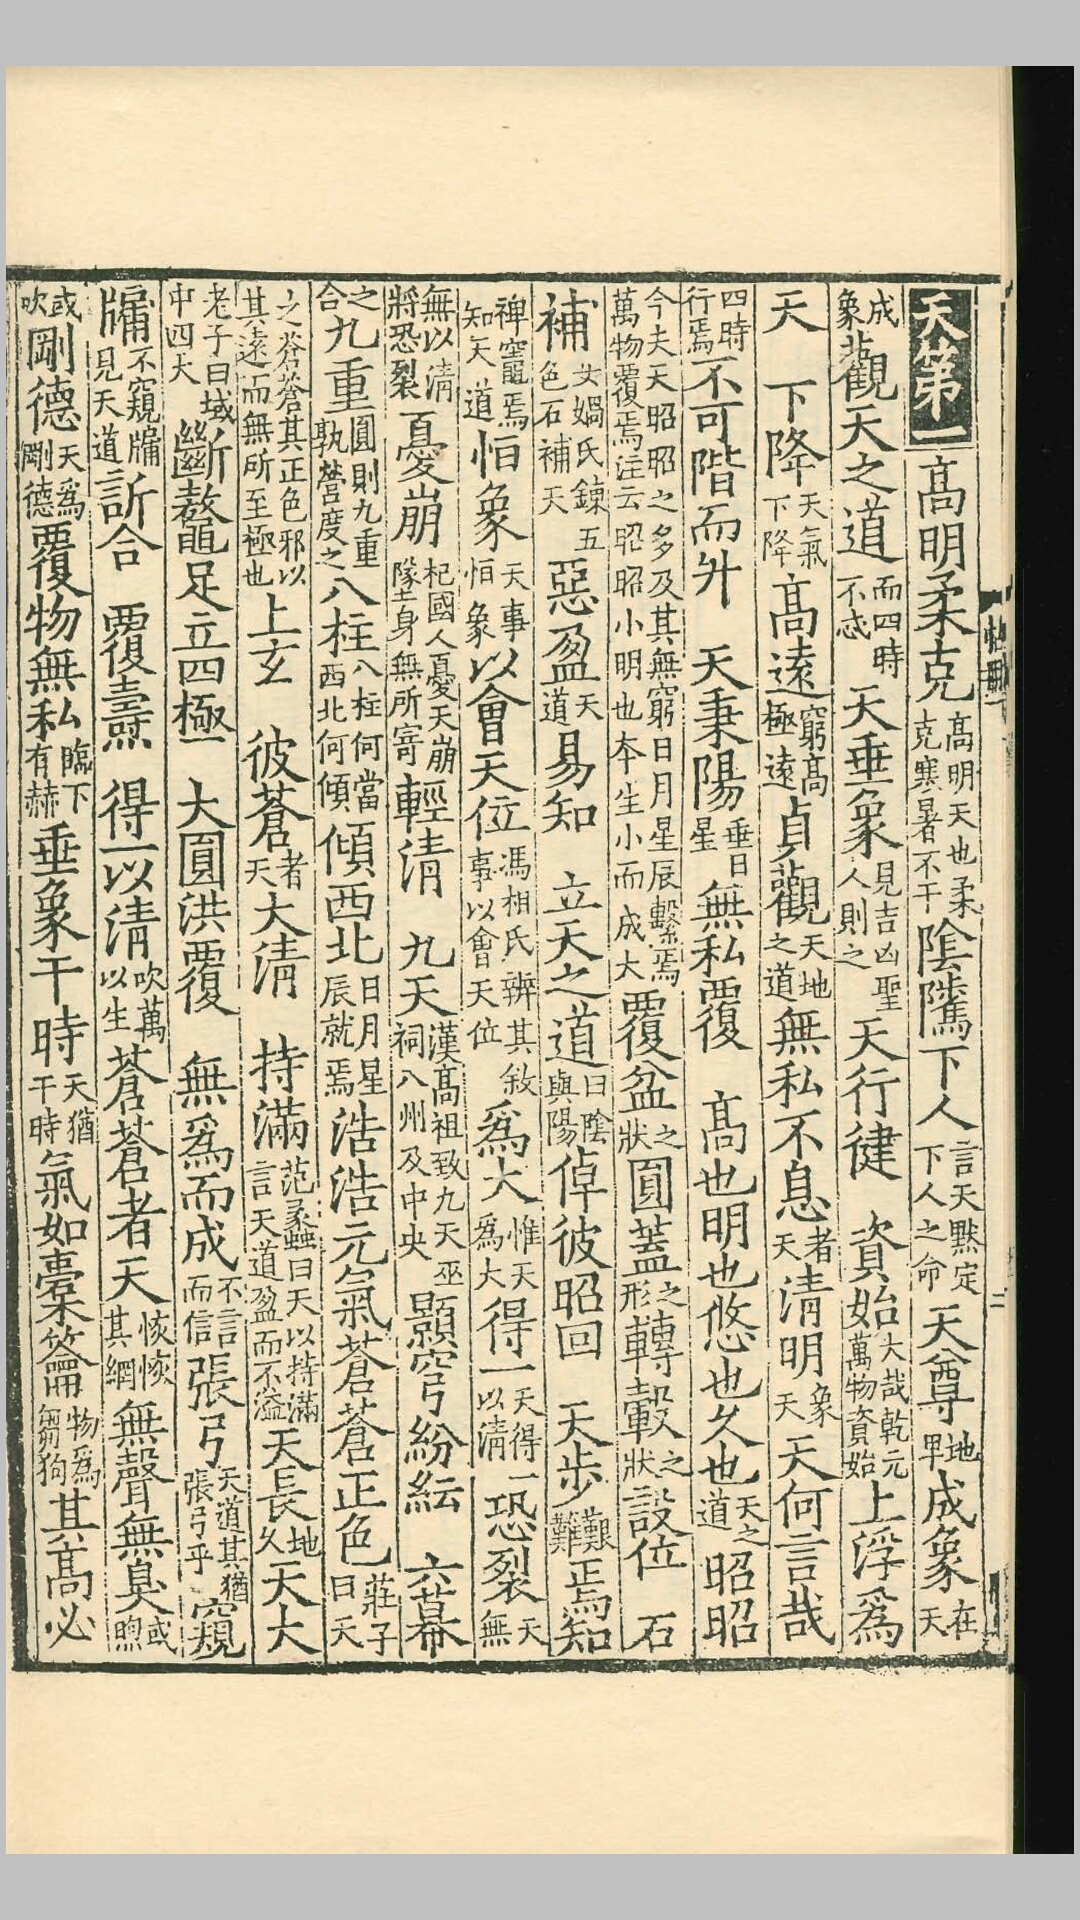 天第一高明柔克高明天也柔克寒暑不干陰隲下人言天黙定下人之命天尊地卑成象在天
成象觀天之道而四時不忒天垂象見吉凶聖人則之天行健資始大哉乾元萬物資始上浮為
天下降天氣下降高遠窮高極遠貞觀天地之道無私不息者天清明象天天何言哉
四時行焉不可階而升天秉陽垂日星無私覆高也明也悠也久也天之道昭昭
今夫天昭昭之多及其無窮日月星辰繫焉萬物覆焉注云昭昭小明也本生小而成大覆盆之狀圓蓋之形轉轂之狀設位石
補女媧氏鍊五色石補天惡盈天道易知立天之道曰陰與陽倬彼昭回天步艱難焉知
禆竈焉知天道恒象天事恒象以會天位馮相氏辨其敘事以會天位為大惟天為大得一天得一以清恐裂天無
無以清將恐裂憂崩杞國人憂天崩墜身無所寄輕清九天漢高祖致九天巫祠八州及中央顥穹紛紜六幕
之合九重圓則九重孰營度之八柱八柱何當西北何傾傾西北日月星辰就焉浩浩元氣蒼蒼正色莊子曰天
之蒼蒼其正色邪以其遠而無所至極也上玄彼蒼者天大清持滿范蠡曰天以持滿言天道盈而不溢天長地久天大
老子曰域中四天斷鼇足立四極大圓洪覆無為而成不言而信張弓天道其猶張弓乎窺
牖不窺牖見天道訢合覆燾得一以清吹萬以生蒼蒼者天恢恢其網無聲無臭或喣
或吹剛德天為剛德覆物無私臨下有赫垂象干時天猶干時氣如橐籥物為芻狗其高必